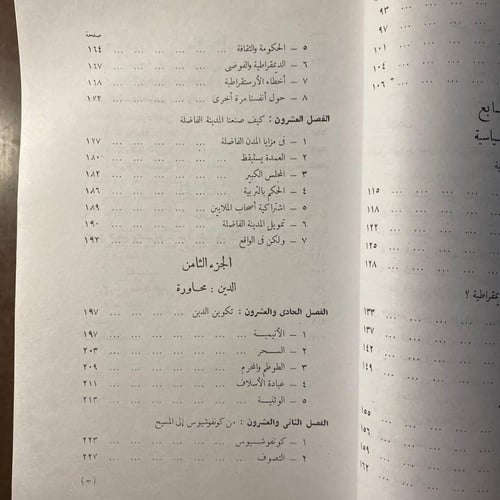 صفحة
٥ – الحكومة والثقافة ... ... ... ... ... ... ١٦٤
٦ – الديمقراطية والفوضى ... ... ... ... ... ١٦٧
٧ – أخطاء الأرستقراطية ... ... ... ... ... ١٦٨
٨ – حول أنفسنا مرة أخرى ... ... ... ... ١٧٢
الفصل العشرون : كيف صنعنا المدينة الفاضلة
١ – فى مزايا المدن الفاضلة ... ... ... ... ١٧٧
٢ – العمدة يستيقظ ... ... ... ... ... ١٨٠
٣ – المجلس الكبير ... ... ... ... ... ١٨٢
٤ – الحكم بالتربية ... ... ... ... ... ١٨٦
٥ – اشتراكية أصحاب الملايين ... ... ... ... ١٨٩
٦ – تمويل المدينة الفاضلة ... ... ... ... ١٩٠
٧ – ولكن فى الواقع ... ... ... ... ... ١٩٢
الجزء الثامن
الدين : محاورة
الفصل الحادى والعشرون : تكوين الدين ... ... ... ١٩٧
١ – الأنيمية ... ... ... ... ... ... ١٩٧
٢ – السحر ... ... ... ... ... ... ٢٠٣
٣ – الطوطم والمحرم ... ... ... ... ... ٢٠٩
٤ – عبادة الأسلاف ... ... ... ... ... ٢١١
٥ – الوثنية ... ... ... ... ... ... ٢١٣
الفصل الثانى والعشرون : من كونفوشيوس إلى المسيح
١ – كونفوشيوس ... ... ... ... ... ٢٢٣
٢ – التصوف ... ... ... ... ... ... ٢٢٧
٩٣
٩٧
١٠١
١٠٤
١٠٦
١١٥
١١٨
١٢٢
١٢٥
١٢٨
١٣٣
١٣٧
١٤٢
١٤٩
١٥٥
١٥٦
١٥٩
١٦٢